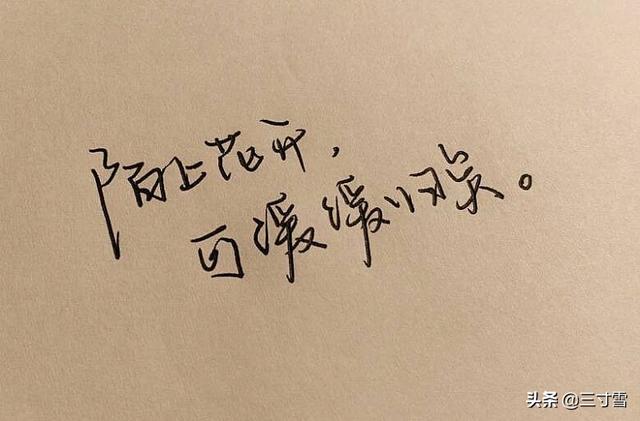 陌上花开，
可缓缓归矣。
头条 @三寸雪